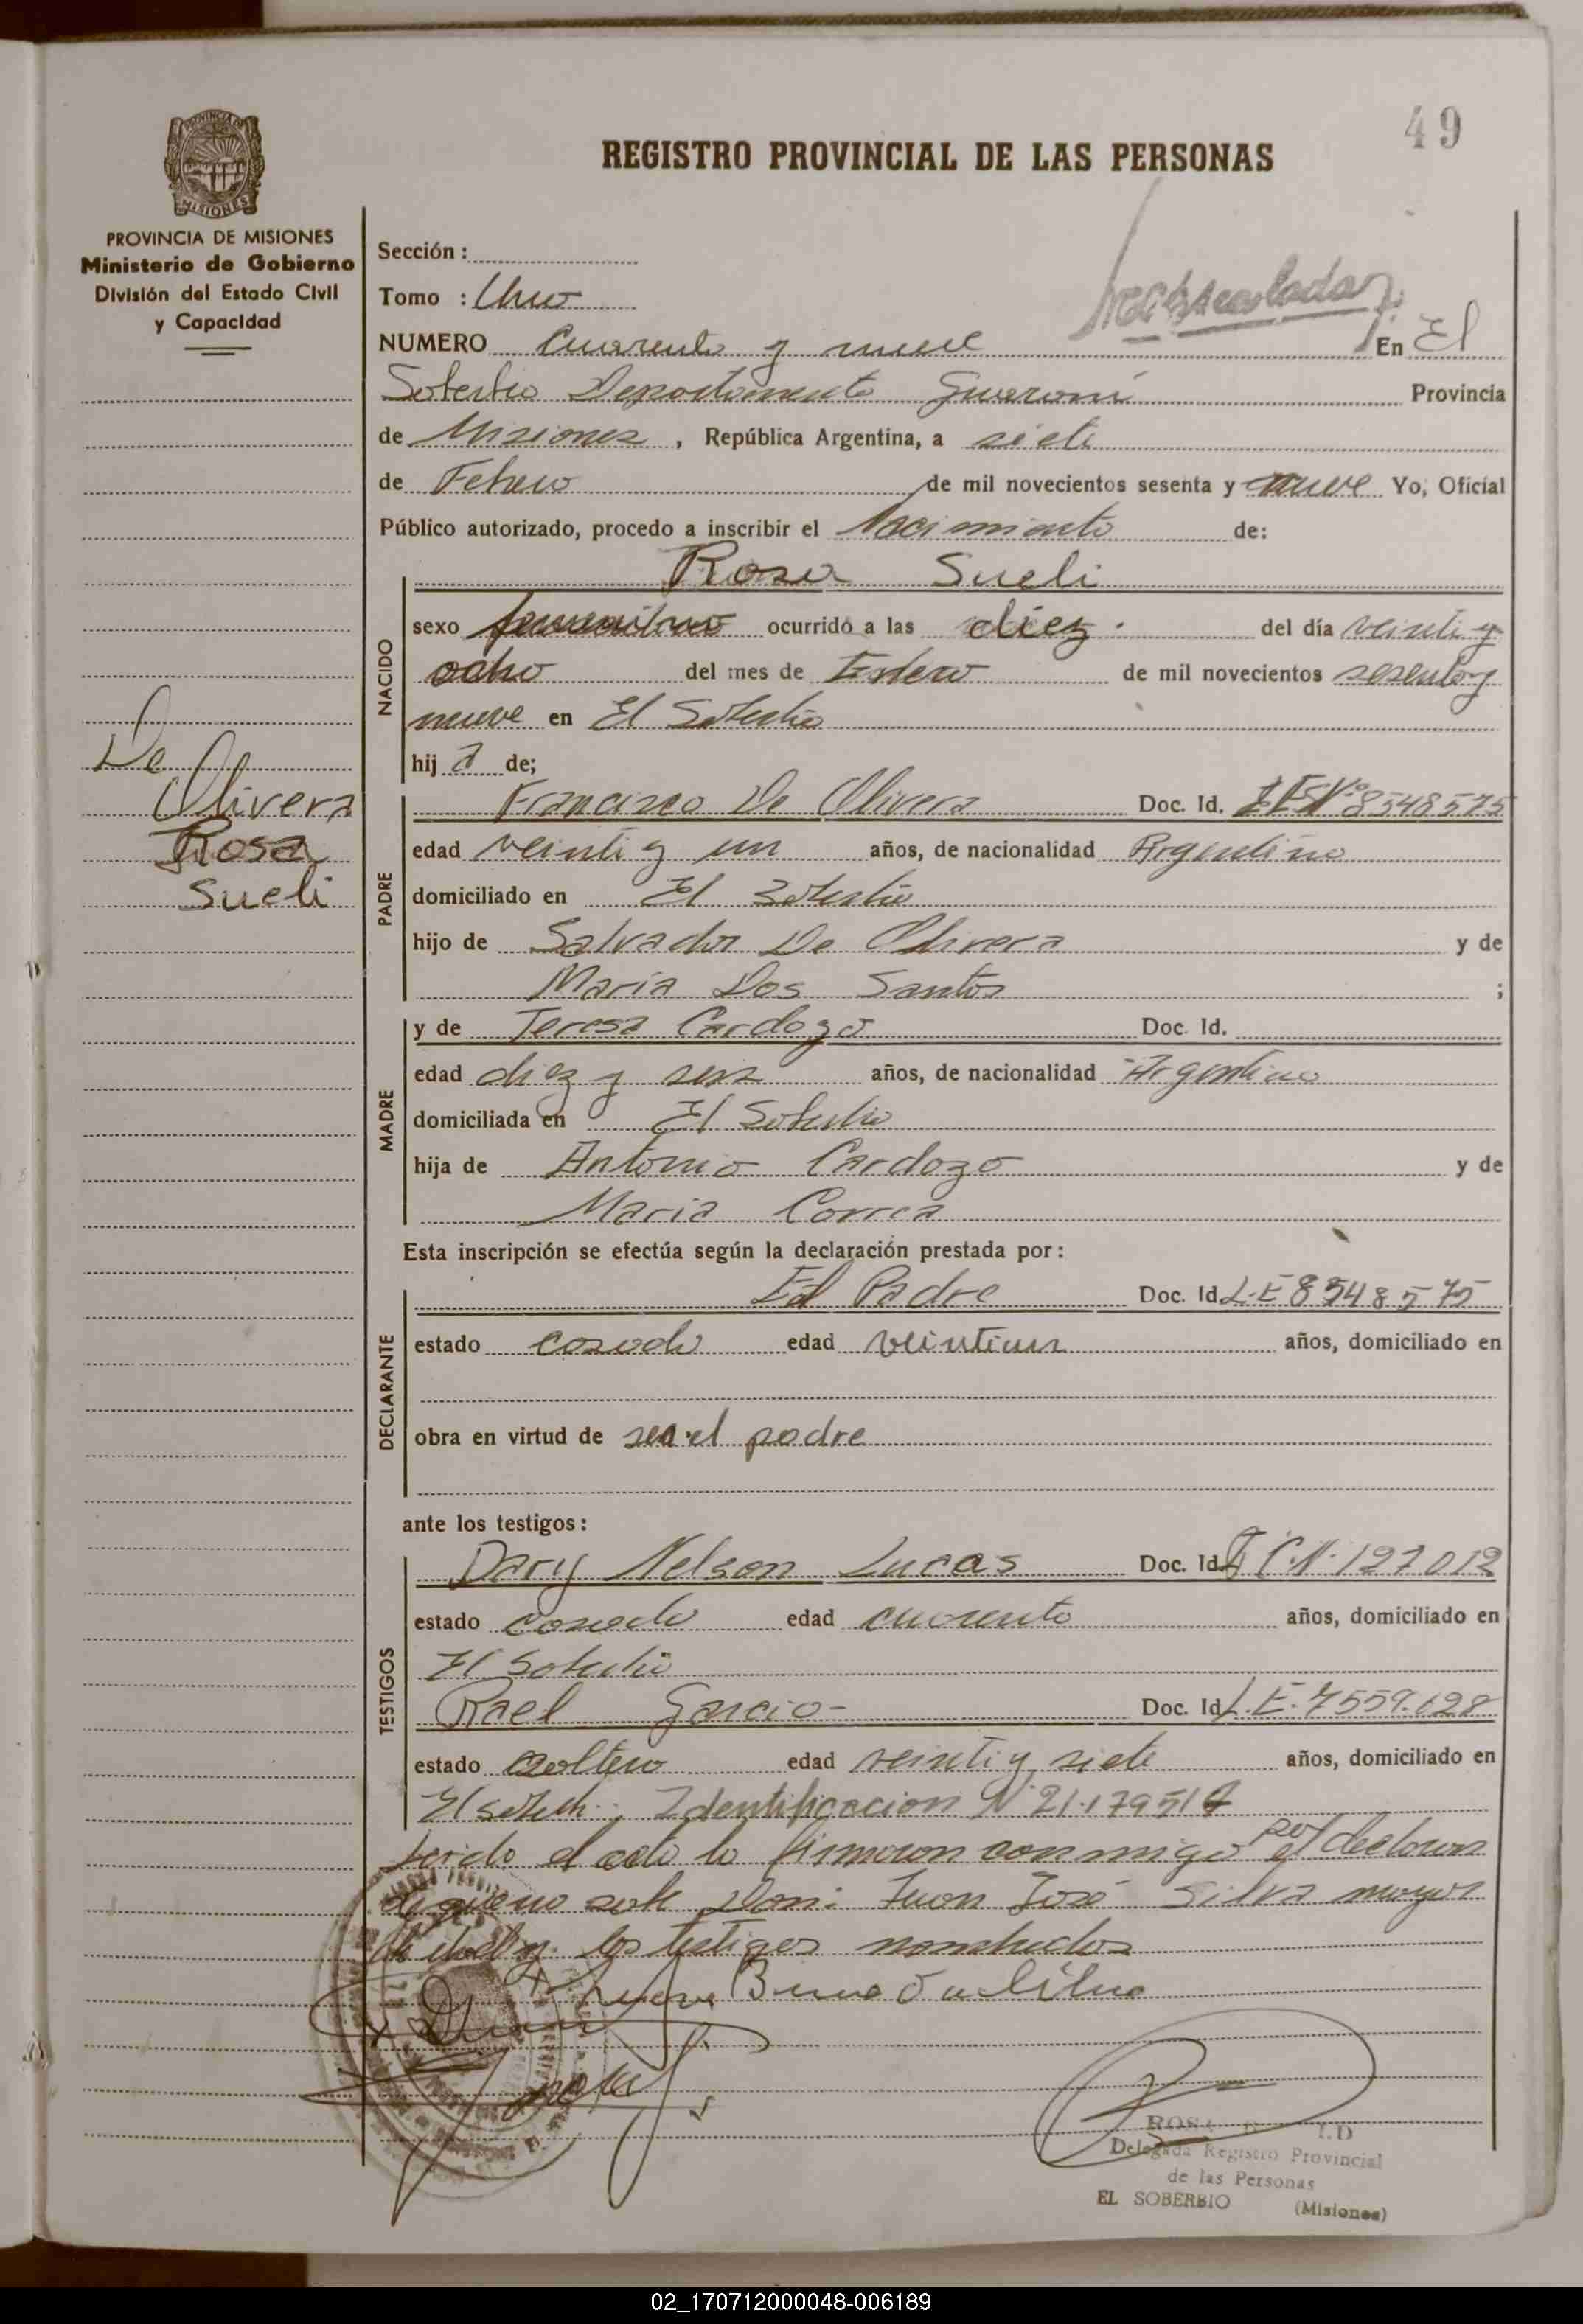 49
REGISTRO PROVINCIAL DE LAS PERSONAS
PROVINCIA DE MISIONES
Ministerio de Gobierno
División del Estado Civil
y Capacidad
Sección :
Tomo : Uno
NUMERO Cuarenta y nueve En El
Soberbio Departamento Guaraní Provincia
de Misiones, República Argentina, a siete
de Febrero de mil novecientos sesenta y nueve Yo, Oficial
Público autorizado, procedo a inscribir el Nacimiento de:
Rosa Sueli
NACIDO
sexo femenino ocurrido a las diez. del día veinti y
ocho del mes de Enero de mil novecientos sesenta y
nueve en El Soberbio
hij a de;
De
Olivera
Rosa
Sueli
PADRE
Francisco De Olivera Doc. Id. L E Nº 8548575
edad veinti y un años, de nacionalidad Argentino
domiciliado en El Soberbio
hijo de Salvador De Olivera y de
María Dos Santos ;
MADRE
y de Teresa Cardozo Doc. Id.
edad diez y seis años, de nacionalidad Argentina
domiciliada en El Soberbio
hija de Antonio Cardozo y de
Maria Correa
Esta inscripción se efectúa según la declaración prestada por:
DECLARANTE
El Padre Doc. Id. L.E 8548575
estado casado edad veintiun años, domiciliado en
obra en virtud de ser el padre
ante los testigos:
TESTIGOS
Dary Nelson Lucas Doc. Id. C.N. 127012
estado casado edad cuarenta años, domiciliado en
El Soberbio
Rael Garcia - Doc. Id L.E. 7559.128
estado soltero edad veinti y siete años, domiciliado en
El Identificacion Nº 21.179517
el acto lo firmaron conmigo por el
Don: Juan José Silva mayor
los testigos nombrados
Delegada Registro Provincial
de las Personas
EL SOBERBIO (Misiones)
02_170712000048-006189